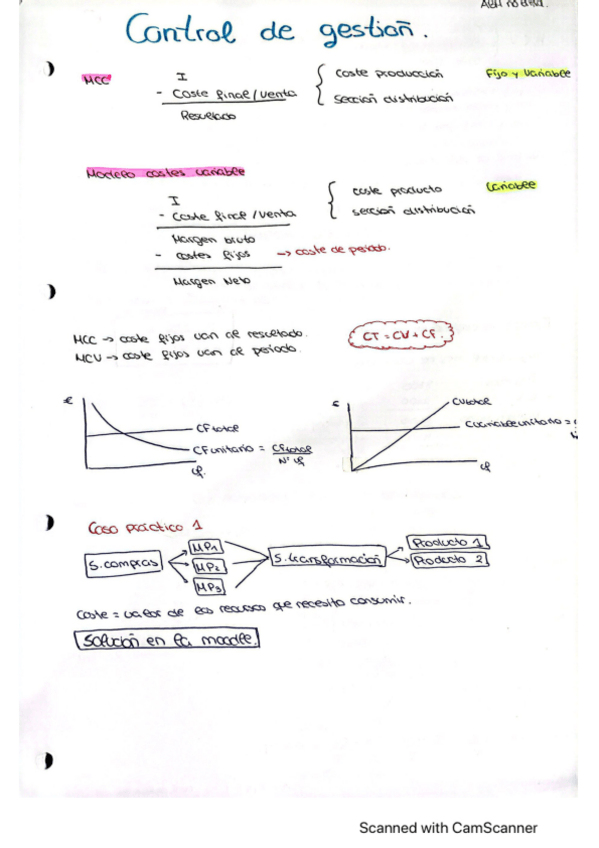 Control de gestión.
MCC
I
- Coste final/venta
Resultado
coste producción
sección distribución
Fijo y Variable
Modelo costes variable
I
- Coste final/venta
Margen bruto
- costes fijos → coste de periodo.
Margen Neto
coste producto
sección distribución
Variable
MCC → coste fijos van al resultado.
MCV → coste fijos van al periodo.
CT = CV + CF.
€
CFtotal
CFunitario = CFtotal / Nº q
q.
€
CVtotal
CVariableunitario =
q
Caso práctico 1
S. compras
MP1
MP2
MP3
S. transformación
Producto 1
Producto 2
Coste = valor de los recursos que necesito consumir.
Solución en la moodle.
Scanned with CamScanner